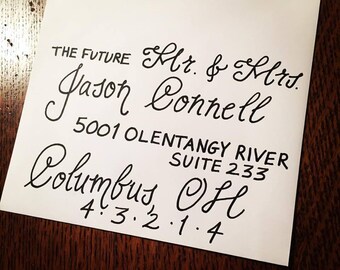 THE FUTURE Mr. & Mrs.
Jason Connell
5001 OLENTANGY RIVER
SUITE 233
Columbus, OH
4·3·2·1·4